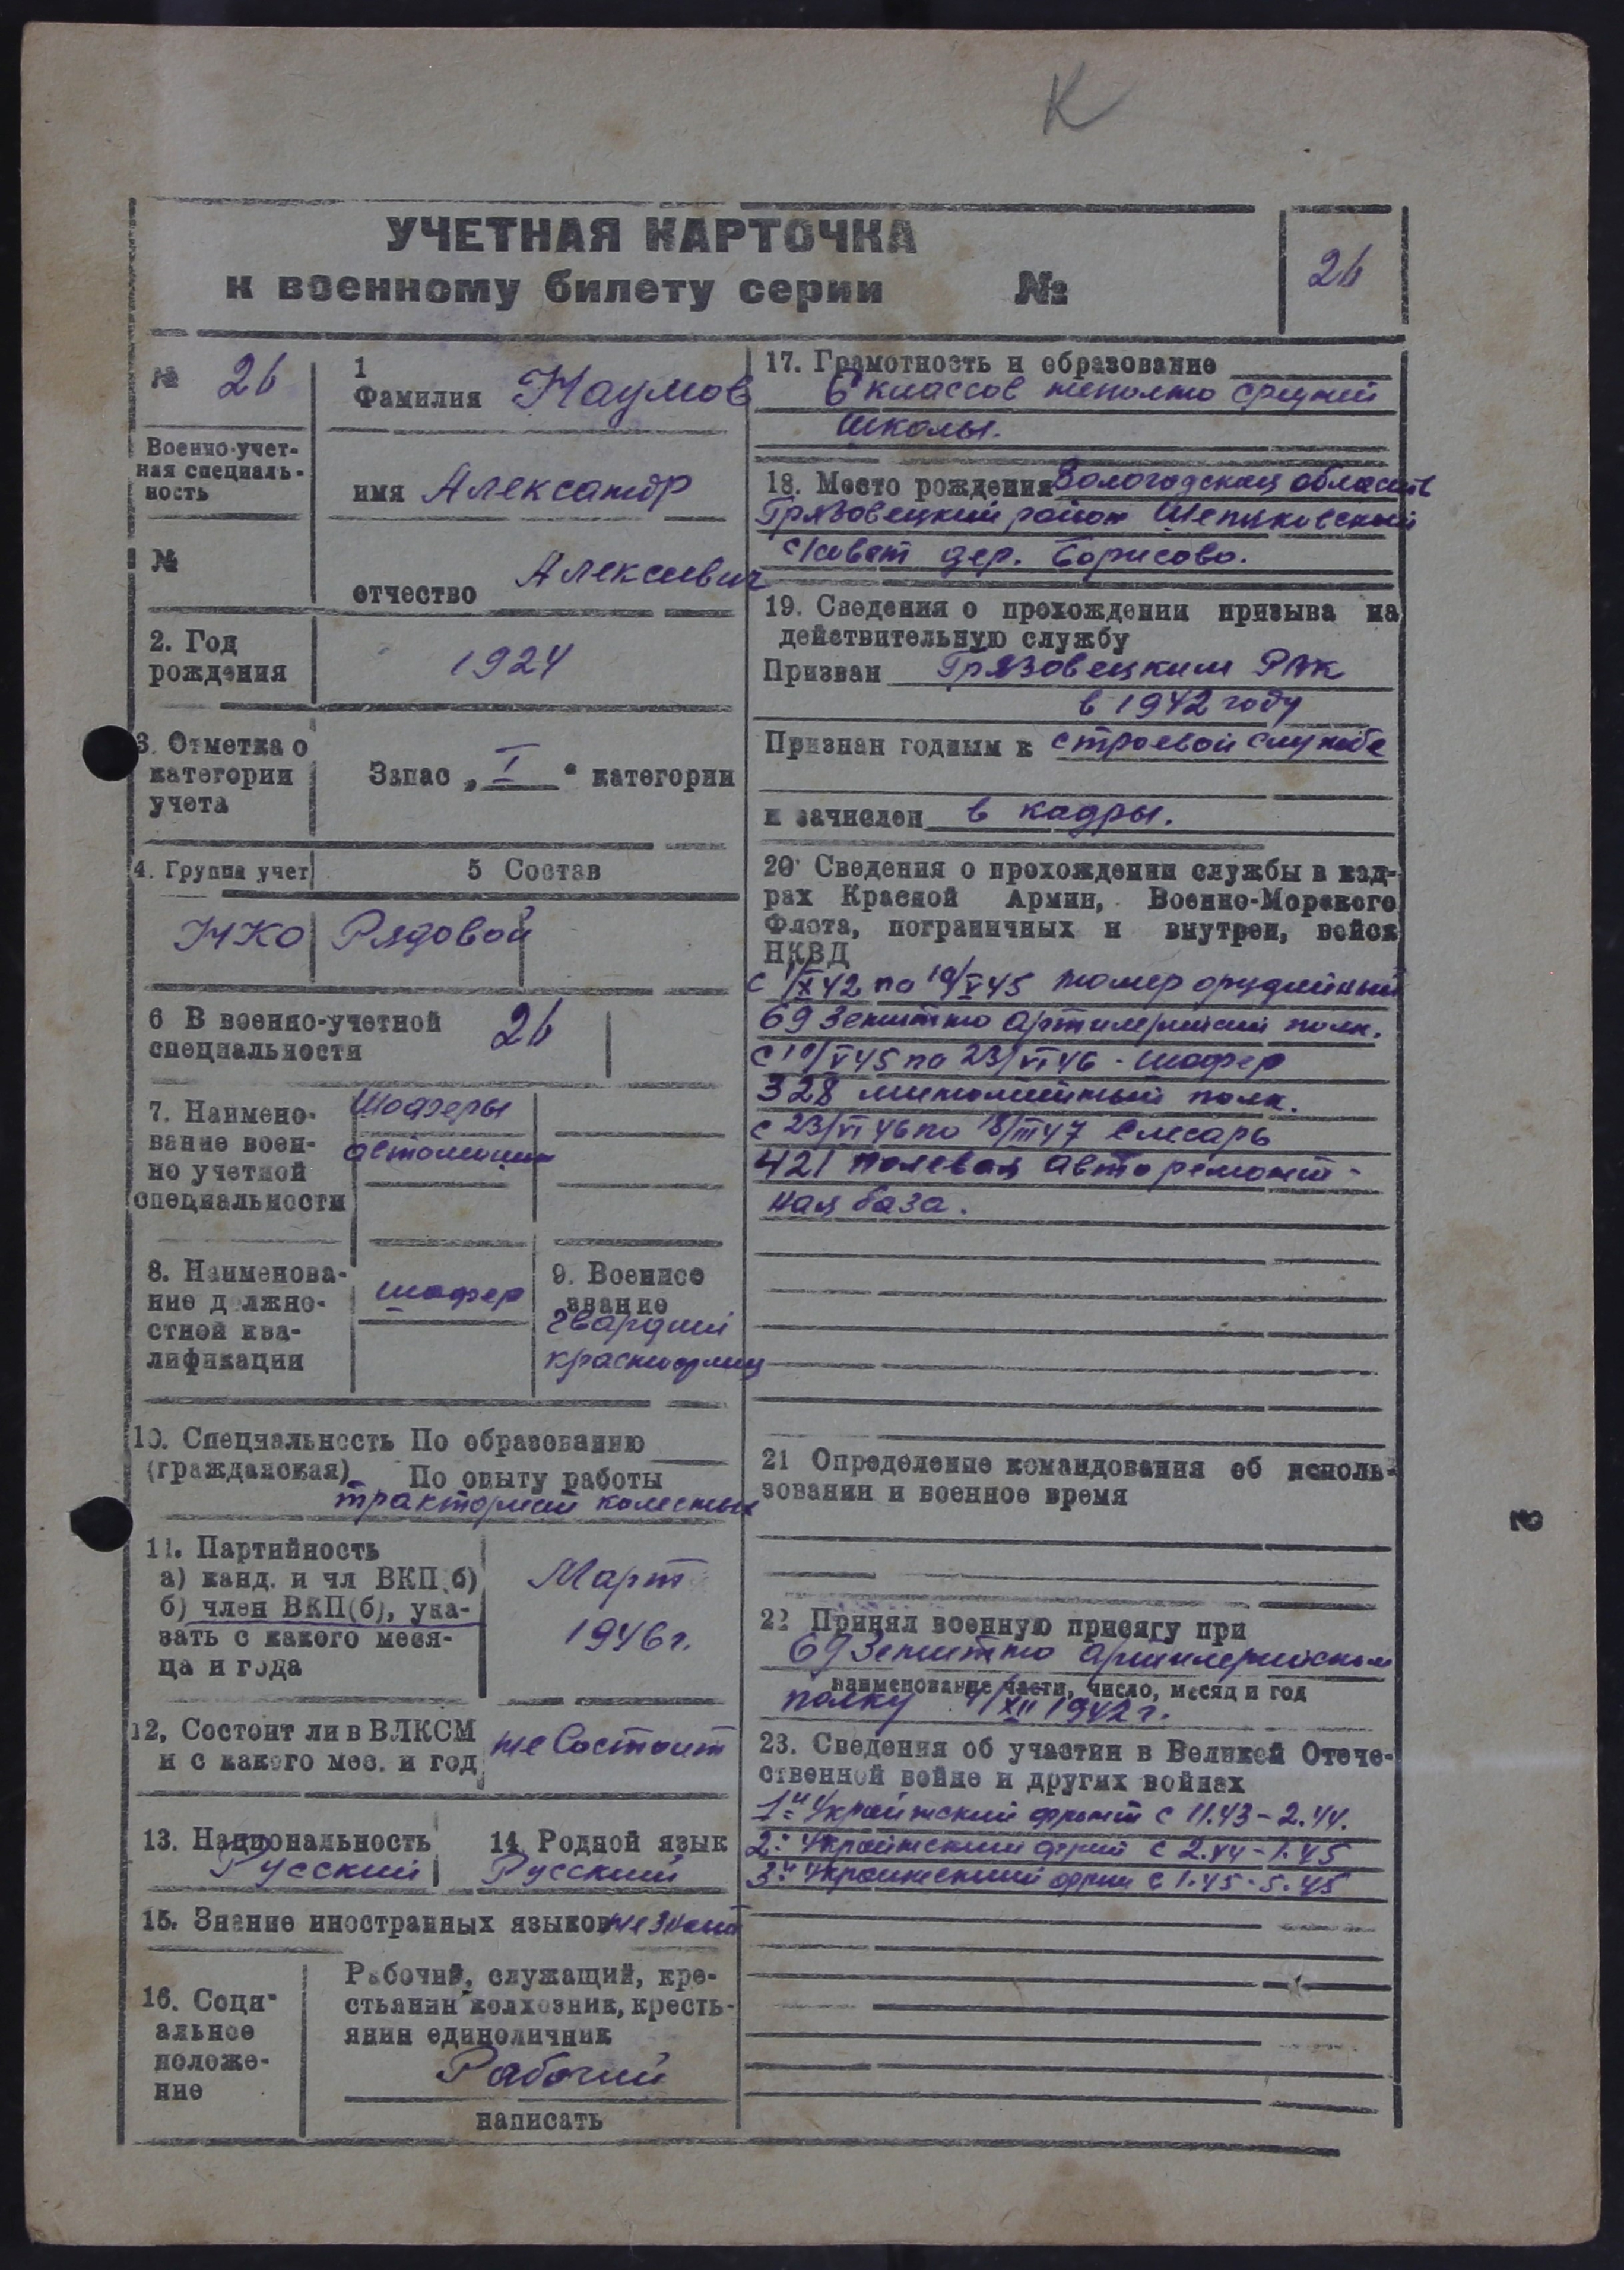 К
УЧЕТНАЯ КАРТОЧКА
к военному билету серии №
26
№ 26
1
Фамилия Наумов
Военно-учет-
ная специаль-
ность
имя Александр
№
отчество Алексеевич
2. Год
рождения
1924
3. Отметка о
категории
учета
Запас „ I “ категории
4. Группа учет
5 Состав
НКО Рядовой
6 В военно-учетной
специальности
26
7. Наимено-
вание воен-
но учетной
специальности
Шоферы
автомашин
8. Наименова-
ние должно-
стной ква-
лификации
шофер
9. Военное
звание
гвардии
красноармеец
10. Специальность По образованию
(гражданская) По опыту работы
тракторист колесных
11. Партийность
а) канд. и чл ВКП(б)
б) член ВКП(б), ука-
зать с какого меся-
ца и года
Март
1946 г.
12, Состоит ли в ВЛКСМ
и с какого мес. и год
не Состоит
13. Национальность
Русский
14 Родной язык
Русский
15. Знание иностранных языков не знает
16. Соци-
альное
положе-
ние
Рабочий, служащий, кре-
стьянин колхозник, кресть-
янин единоличник
Рабочий
написать
17. Грамотность и образование
6 классов неполно средней
школы.
18. Место рождения Вологодская область
Грязовецкий район
с/совет дер. Борисово.
19. Сведения о прохождении призыва на
действительную службу
Призван Грязовецким РВК
в 1942 году
Признан годным к строевой службе
и зачислен в кадры.
20 Сведения о прохождении службы в кад-
рах Красной Армии, Военно-Морского
Флота, пограничных и внутрен, войск
НКВД
с 1/X 42 по 19/V 45 номер орудийный
69 Зенитно артилерийский полк.
с 19/V 45 по 23/VI 46 - шофер
328 минометный полк.
с 23/VI 46 по 18/III 47 слесарь
421 полевая авторемонт-
ная база.
21 Определение командования об исполь-
зовании и военное время
22 Принял военную присягу при
69 Зенитно артилерийском
наименование части, число, месяц и год
полку /XII 1942 г.
23. Сведения об участии в Великой Отече-
ственной войне и других войнах
1й Украинский фронт с 11.43 - 2.44.
2й Украинский с 2.44 - 1.45
3й Украинский с 1.45 - 5.45
2